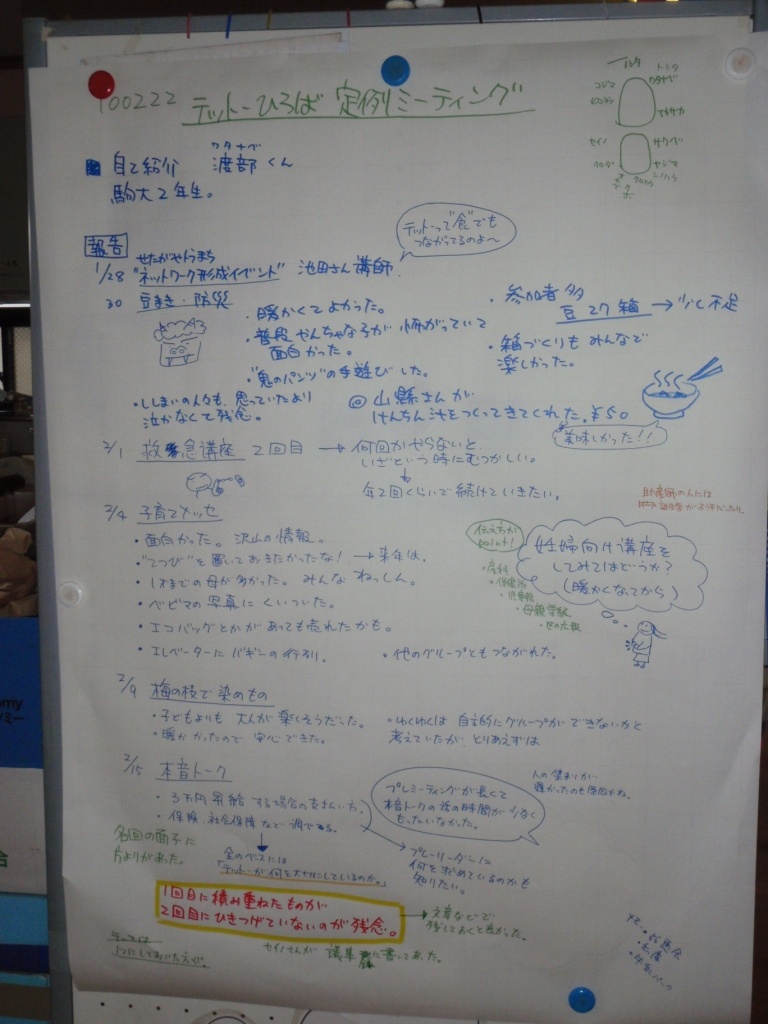 100222 テットーひろば 定例ミーティング
トミタ
ワタナベ
コジマ
セイノ
サクベ
ヤジマ
シノハラ
ワタナベ
自己紹介 渡部くん
駒大2年生。
テットーって"食"でも
つながってるのよ〜
報告
せたがやとうまち
1/28 "ネットワーク形成イベント" 池田さん講師.
30 豆まき・防災
・暖かくてよかった。
・普段やんちゃな子が怖がっていて
面白かった。
・"鬼のパンツ"の手遊びした。
・参加者多
豆27箱 → 少し不足
・箱づくりもみんなで
楽しかった。
・ししまいの人々も、思っていたより
泣かなくて残念。
◎ 山縣さんが
けんちん汁をつくってきてくれた. ¥50
美味しかった!!
2/1 救急講座 2回目 → 何回かやらないと、
いざという時にむつかしい。
年2回くらいで続けていきたい。
2/4 子育てメッセ
・面白かった。沢山の情報。
・"てつび"を置いておきたかったな! → 来年は.
・1才までの母が多かった。みんなねっしん。
・ベビマの写真にくいついた。
・エコバッグとかがあっても売れたかも。
・エレベーターにバギーの行列.
・他のグループともつながれた。
助産師の人には
伝え方が
point!
・産科
・保健所
・児童館
・母親学級
・区の広報
妊婦向け講座を
してみてはどうか?
(暖かくなってから)
2/9 梅の枝で染めもの
・子どもよりも 大人が楽しそうだった。
・暖かかったので 安心できた。
・わくわくは 自主的にグループができないかと
考えていたが、とりあえずは
2/15 本音トーク
・3万円昇給する場合の支払い方.
・保険.社会保障など調べる.
プレミーティングが長くて
本音トークの後の時間が少なく
もったいなかった。
人の集まりが
遅かったのも原因かね。
各回の面子に
片よりがあった。
全のベースには
「テットーが何を大切にしているのか。」
・プレーリーダーに
何を求めているのかも
知りたい。
1回目に積み重ねたものが
2回目にひきつげていないのが残念。
→ 文章などで
残しておくと良かった。
セイノさんが 議事録に書いてあった。